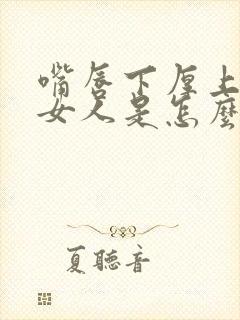 嘴唇下厚上
女人是怎麼
夏聽音